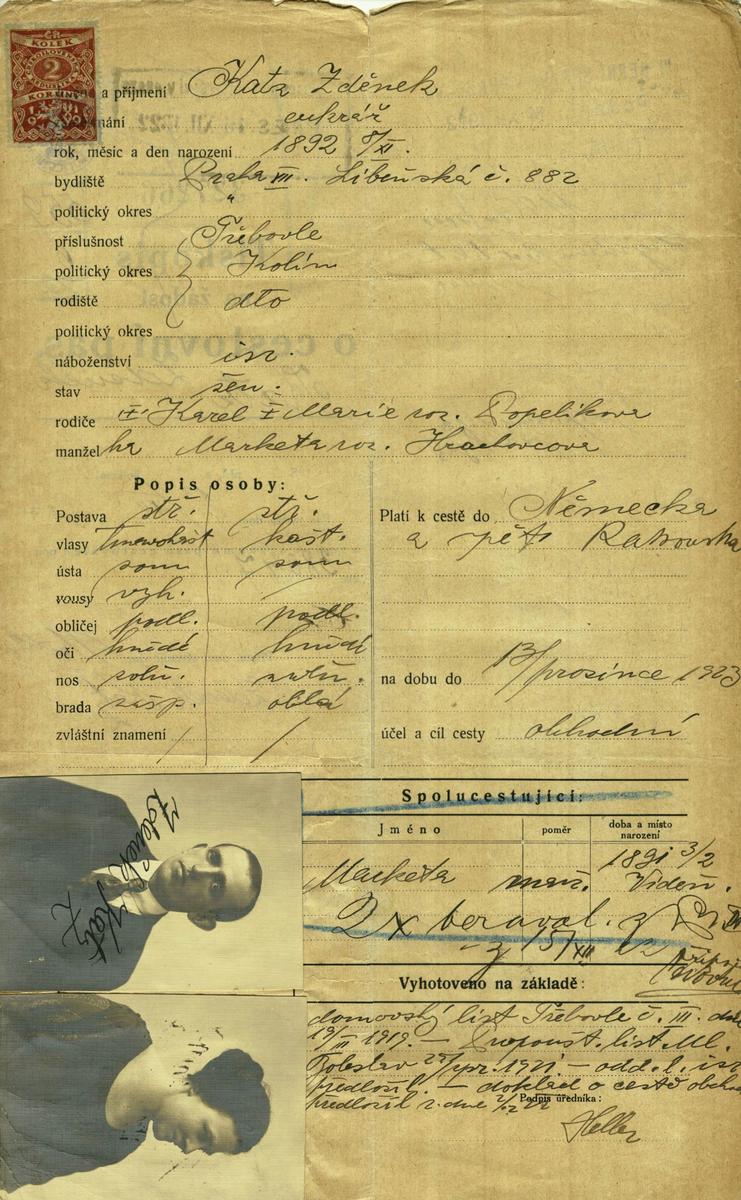 ČR
KOLEK
2
KORUNY
a příjmení Katz Zdeněk
cukrář
rok, měsíc a den narození 1892 8/XI.
bydliště Praha VII. Libeňská č. 882
politický okres "
příslušnost Třebovle
politický okres Kolín
rodiště dto
politický okres
náboženství isr.
stav žen.
rodiče Karel Marie roz. Popelíkova
manžel ka Marketa roz. Hradovcova
Popis osoby:
Postava stř. stř.
vlasy kašt.
ústa soum soum
vousy /
obličej podl. podl.
oči hnědé hnědé
nos
brada zašp. oblá
zvláštní znamení / /
Platí k cestě do Německa
a zpět Rakouska
na dobu do 13/prosince 1923
účel a cíl cesty obchodní
Spolucestující:
Jméno poměr doba a místo narození
1891 3/2
Marketa man. Vídeň.
2x
15/XII 22
Vyhotoveno na základě:
domovský list Třebovle č. III. dne
19/III 1919. — Propoušt. list Ml.
Boleslav 1921 — odd. l. isr
předložil. — doklad o cestě obchod
předložil z. dne
Podpis úředníka:
Heller
Zdeněk Katz